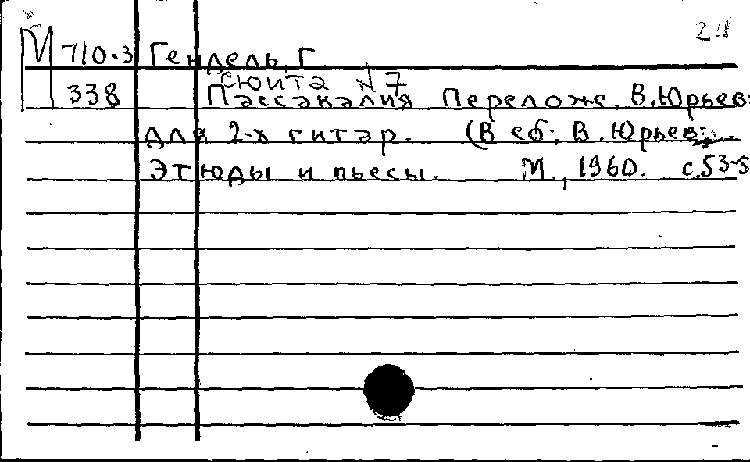 М 710.3 Гендель, Г.
Сюита N 7
338 Пассакалия Перелож. В. Юрьев
для 2-х гитар. (В сб: В. Юрьев:
Этюды и пьесы. М., 1960. с.53-5